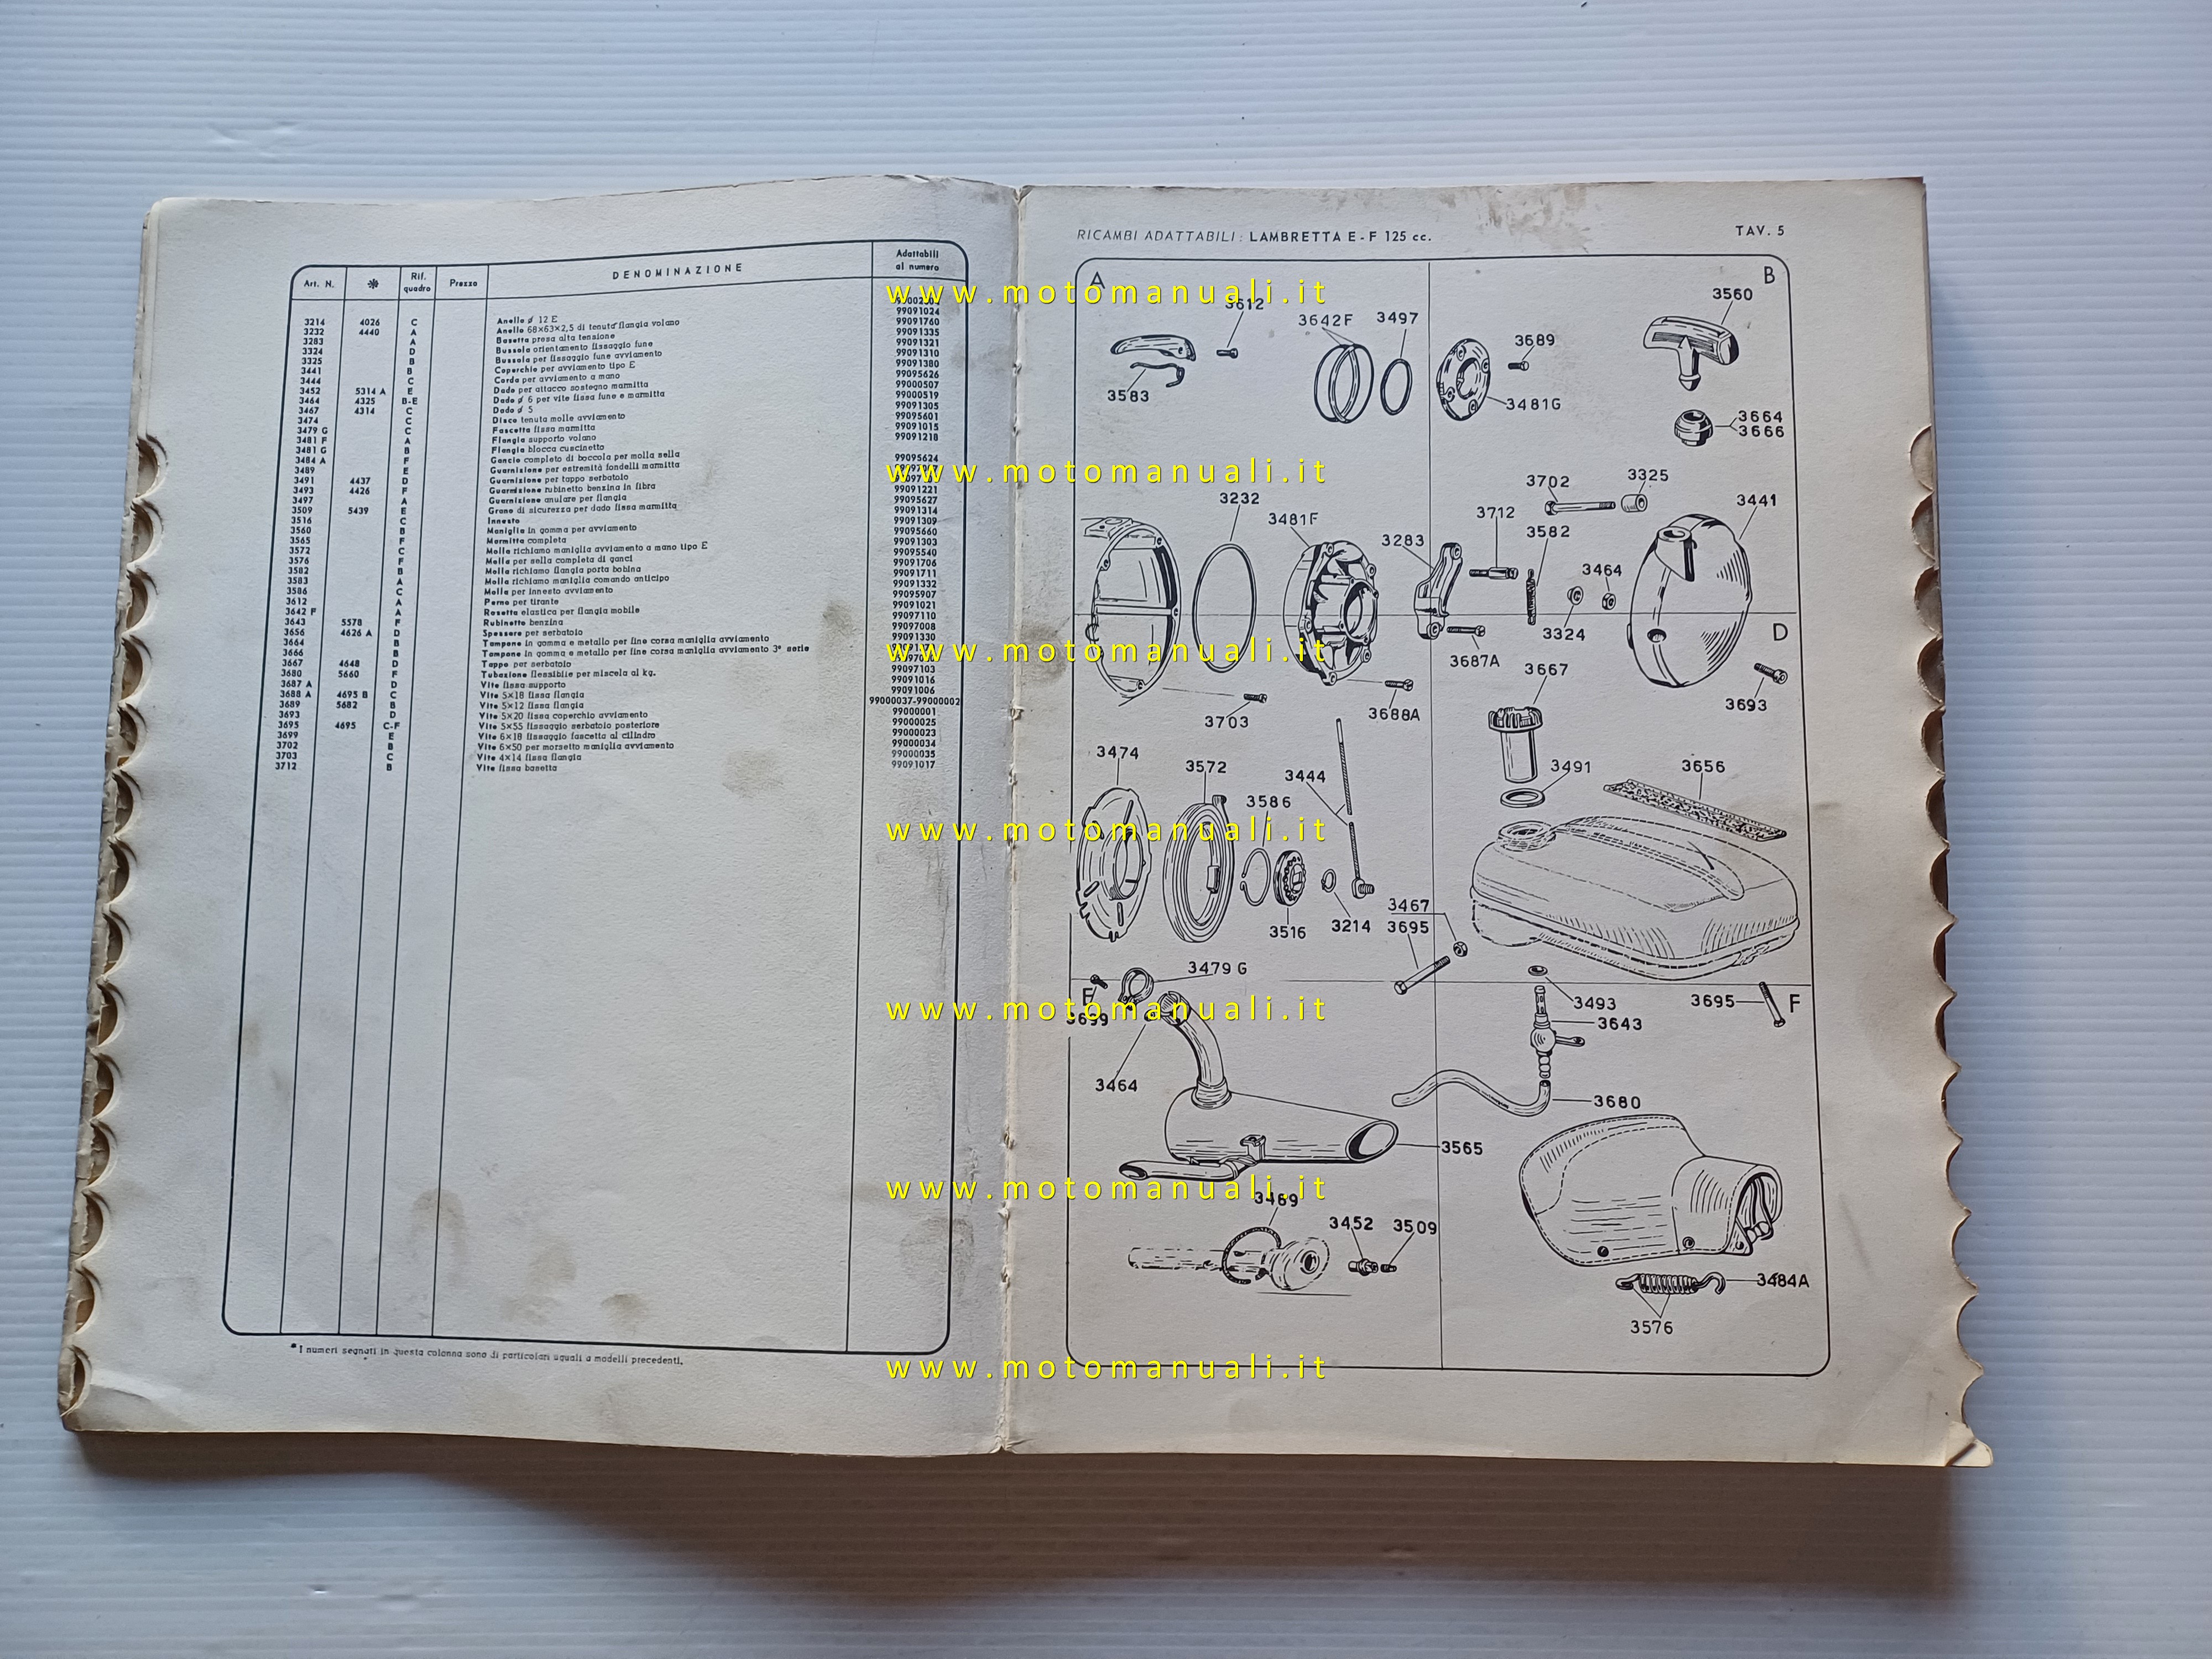 Art. N. ✻ Rif. quadro Prezzo DENOMINAZIONE Adattabili al numero
3214 4026 C Anello ø 12 E
3232 4440 A Anello 68×63×2,5 di tenuta flangia volano
3283 A Basetta presa alta tensione
3324 D Bussola orientamento fissaggio fune
3325 B Bussola per fissaggio fune avviamento
3441 B Coperchio per avviamento tipo E
3444 C Corda per avviamento a mano
3452 5314 A E Dado per attacco sostegno marmitta
3464 4325 B-E Dado ø 6 per vite fissa fune e marmitta
3467 4314 C Dado ø 5
3474 C Disco tenuta molle avviamento
3479 G C Fascetta fissa marmitta
3481 F A Flangia supporto volano
3481 G B Flangia blocca cuscinetto
3484 A F Gancio completo di boccola per molla sella
3489 E Guarnizione per estremità fondelli marmitta
3491 4437 D Guarnizione per tappo serbatoio
3493 4426 F Guarnizione rubinetto benzina in fibra
3497 A Guarnizione anulare per flangia
3509 5439 E Grano di sicurezza per dado fissa marmitta
3516 C Innesto
3560 B Maniglia in gomma per avviamento
3565 F Marmitta completa
3572 C Molla richiamo maniglia avviamento a mano tipo E
3576 F Molla per sella completa di ganci
3582 B Molla richiamo flangia porta bobina
3583 A Molla richiamo maniglia comando anticipo
3586 C Molla per innesto avviamento
3612 A Perno per tirante
3642 F A Rosetta elastica per flangia mobile
3643 5578 F Rubinetto benzina
3656 4626 A D Spessore per serbatoio
3664 B Tampone in gomma e metallo per fine corsa maniglia avviamento
3666 B Tampone in gomma e metallo per fine corsa maniglia avviamento 3ª serie
3667 4648 D Tappo per serbatoio
3680 5660 F Tubazione flessibile per miscela al kg.
3687 A D Vite fissa supporto
3688 A 4695 B C Vite 5×18 fissa flangia
3689 5682 B Vite 5×12 fissa flangia
3693 D Vite 5×20 fissa coperchio avviamento
3695 4695 C-F Vite 5×55 fissaggio serbatoio posteriore
3699 E Vite 6×18 fissaggio fascetta al cilindro
3702 B Vite 6×50 per morsetto maniglia avviamento
3703 C Vite 4×14 fissa flangia
3712 B Vite fissa basetta
99091024
99091760
99091335
99091321
99091310
99091380
99095626
99000507
99000519
99091305
99095601
99091015
99091218
99095624
99091221
99095627
99091314
99091309
99095660
99091303
99095540
99091706
99091711
99091332
99095907
99091021
99097110
99097008
99091330
99097103
99091016
99091006
99000037-99000002
99000001
99000025
99000023
99000034
99000035
99091017
* I numeri segnati in questa colonna sono di particolari uguali a modelli precedenti.
RICAMBI ADATTABILI: LAMBRETTA E - F 125 cc. TAV. 5
A B
3612 3560
3642F 3497
3689
3583 3481G
3664
3666
3702 3325
3232 3441
3481F 3712
3283 3582
3464
3324 D
3687A
3667
3703 3688A 3693
3474
3572 3444 3491 3656
3586
3467
3516 3214 3695
3479 G
E 3493 3695 F
3699 3643
3464
3680
3565
3469
3452 3509
3484A
3576
www.motomanuali.it
www.motomanuali.it
www.motomanuali.it
www.motomanuali.it
www.motomanuali.it
www.motomanuali.it
www.motomanuali.it